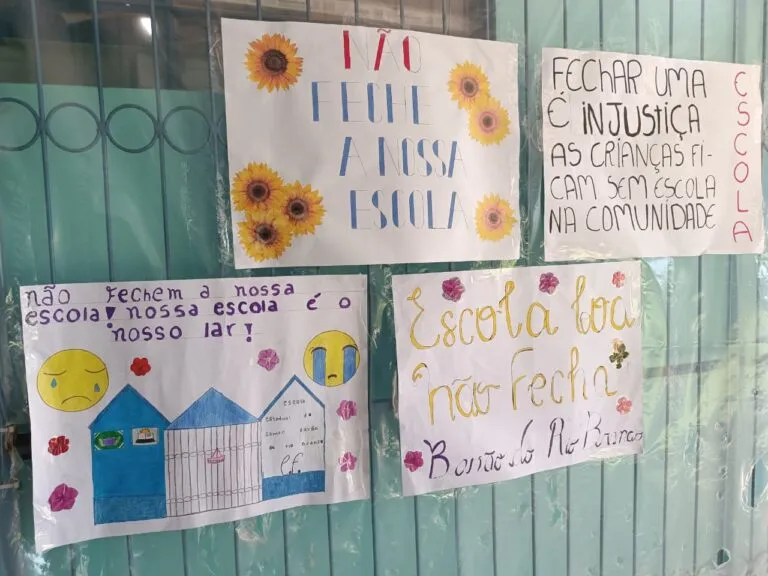 NÃO
FECHE
A NOSSA
ESCOLA
FECHAR UMA
É INJUSTIÇA
AS CRIANÇAS FI-
CAM SEM ESCOLA
NA COMUNIDADE
ESCOLA
não fechem a nossa
escola! nossa escola é o
nosso lar!
ESCOLA
Estadual
Escola boa
não Fecha
Barão do Rio Branco